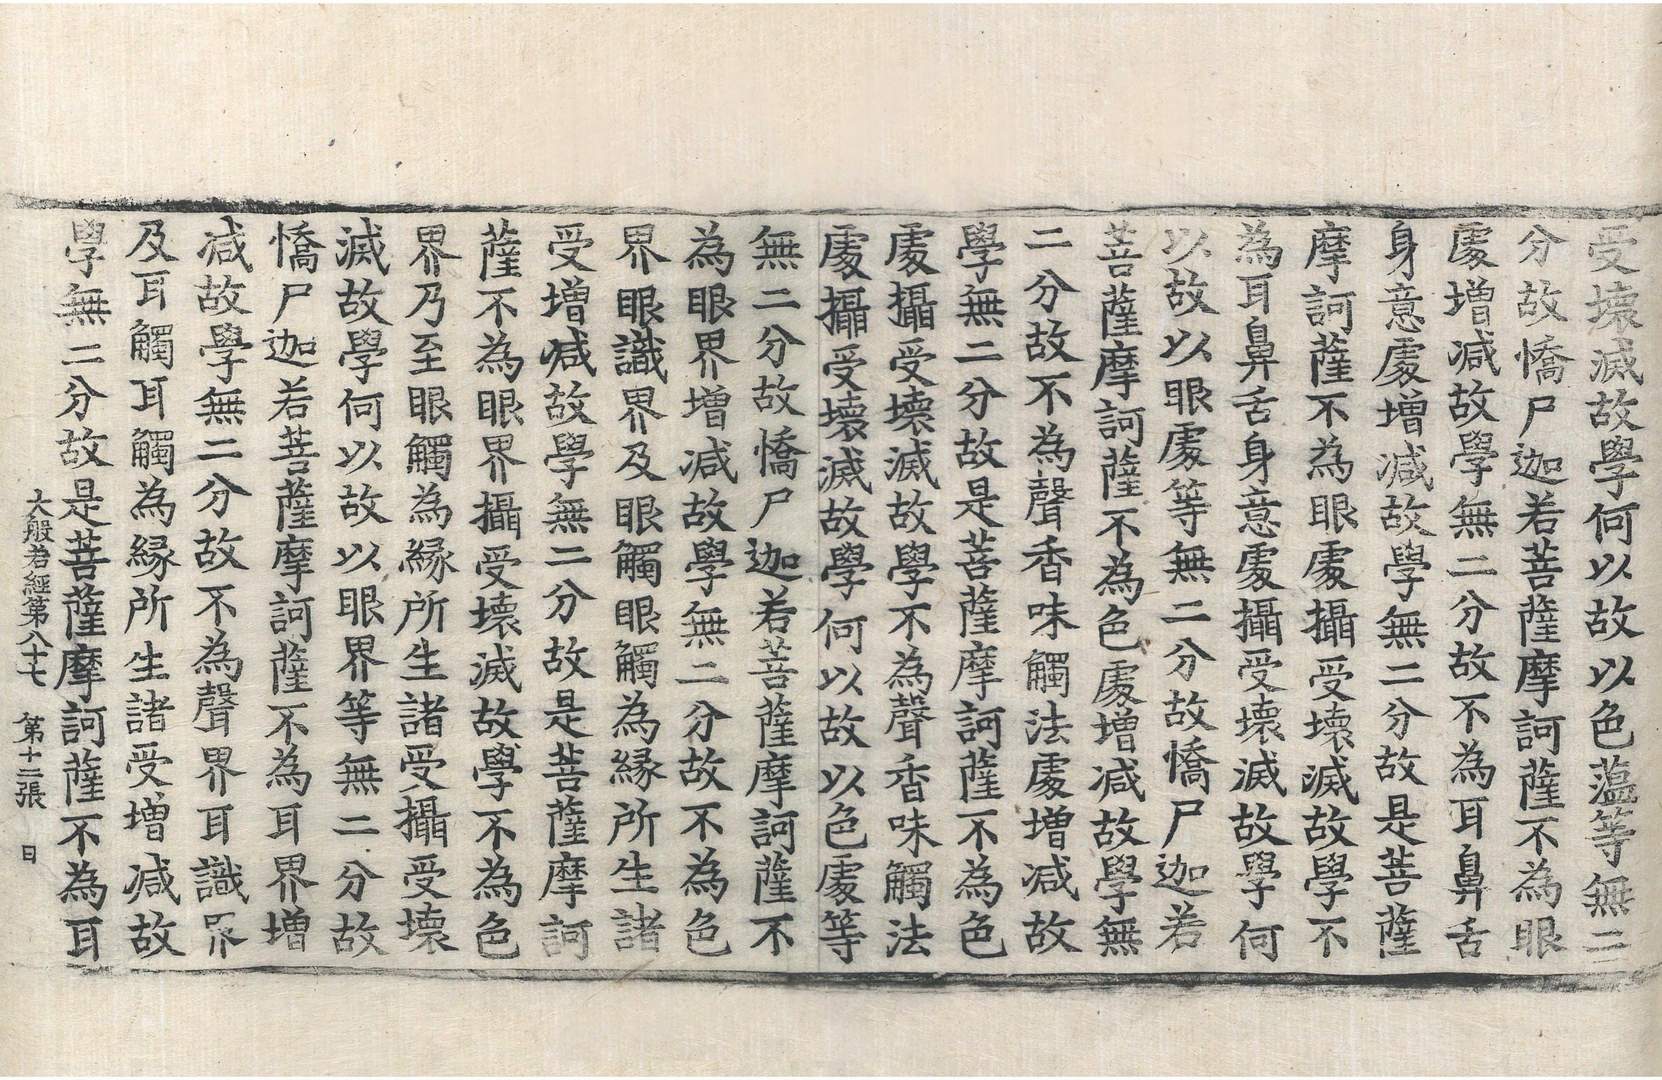 受壞滅故學何以故以色蘊等無二
分故憍尸迦若菩薩摩訶薩不為眼
處增減故學無二分故不為耳鼻舌
身意處增減故學無二分故是菩薩
摩訶薩不為眼處攝受壞滅故學不
為耳鼻舌身意處攝受壞滅故學何
以故以眼處等無二分故憍尸迦若
菩薩摩訶薩不為色處增減故學無
二分故不為聲香味觸法處增減故
學無二分故是菩薩摩訶薩不為色
處攝受壞滅故學不為聲香味觸法
處攝受壞滅故學何以故以色處等
無二分故憍尸迦若菩薩摩訶薩不
為眼界增減故學無二分故不為色
界眼識界及眼觸眼觸為緣所生諸
受增減故學無二分故是菩薩摩訶
薩不為眼界攝受壞滅故學不為色
界乃至眼觸為緣所生諸受攝受壞
滅故學何以故以眼界等無二分故
憍尸迦若菩薩摩訶薩不為耳界增
減故學無二分故不為聲界耳識界
及耳觸耳觸為緣所生諸受增減故
學無二分故是菩薩摩訶薩不為耳
大般若經第八十七 第十二張 日